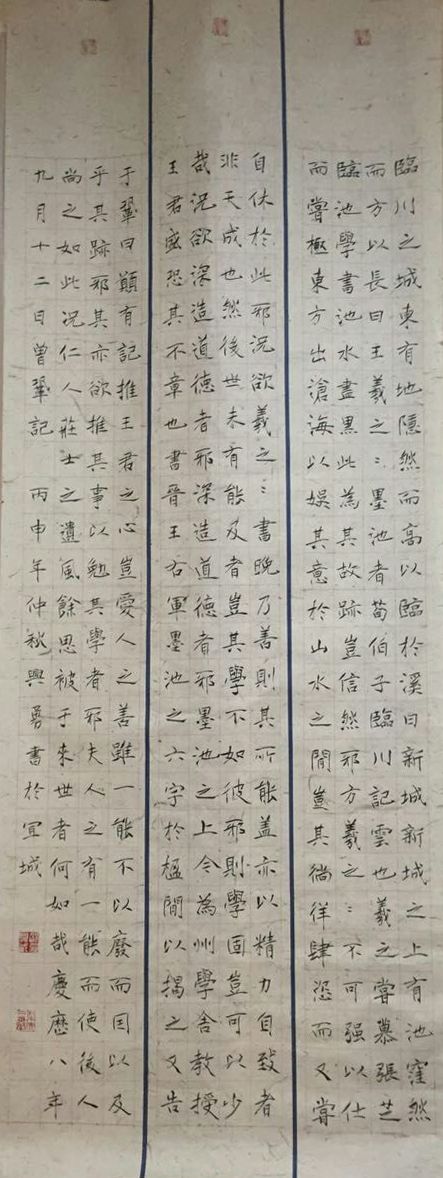 臨川之城東有地隱然而高以臨於溪曰新城新城之上有池窪然
而方以長曰王羲之〻墨池者荀伯子臨川記雲也羲之嘗慕張芝
臨池學書池水盡黑此為其故跡豈信然邪方羲之〻不可强以仕
而嘗極東方出滄海以娛其意於山水之間豈其徜徉肆恣而又嘗
自休於此邪況欲羲之〻書晚乃善則其所能蓋亦以精力自致者
非天成也然後世未有能及者豈其學不如彼邪則學固豈可以少
哉況欲深造道德者邪深造道德者邪墨池之上今為州學舍教授
王君盛恐其不章也書晉王右軍墨池之六字於楹間以揭之又告
于鞏曰顚有記推王君之心豈愛人之善雖一能不以廢而因以及
乎其跡邪其亦欲推其事以勉其學者邪夫人之有一能而使後人
尚之如此況仁人莊士之遺風餘思被于來世者何如哉慶曆八年
九月十二日曾鞏記 丙申年仲秋興勇書於宣城